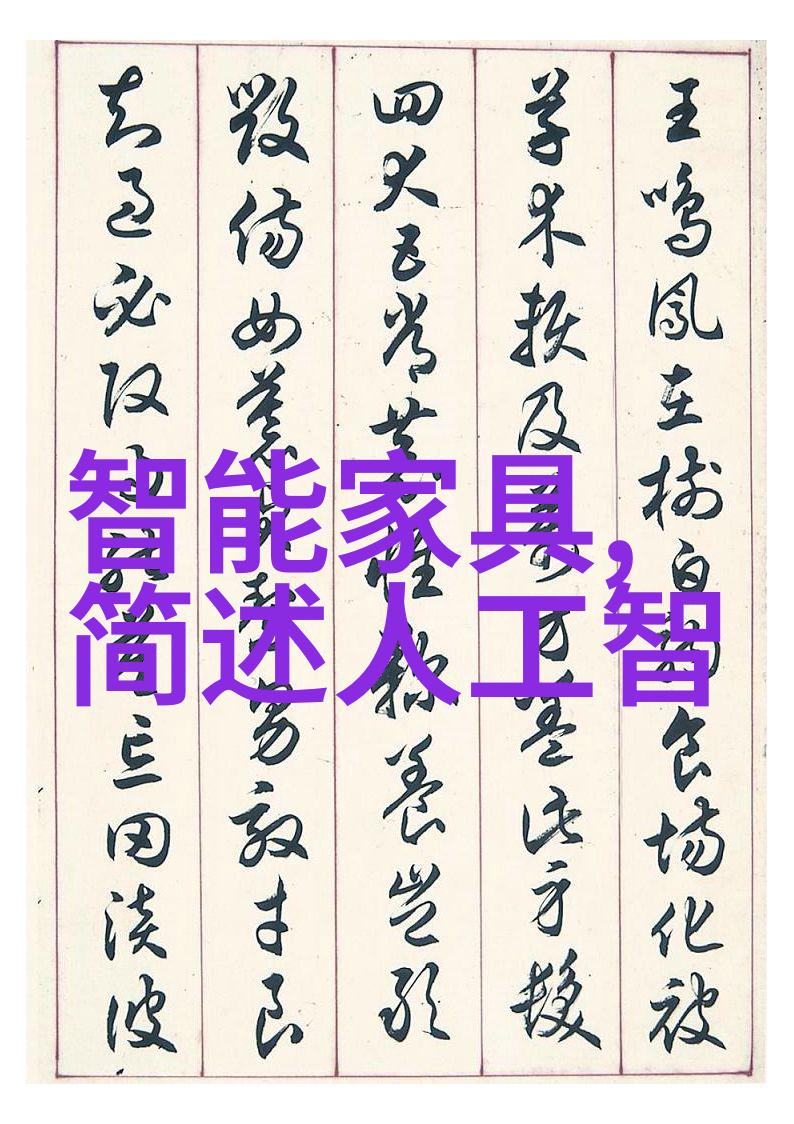 智能家具,
简述人工智
王鳴鳳在樹白駒食場化被
草木賴及萬方蓋此身髮
四大五常恭惟鞠養豈敢
毀傷女慕貞潔男效才良
知過必改得能莫忘罔談彼